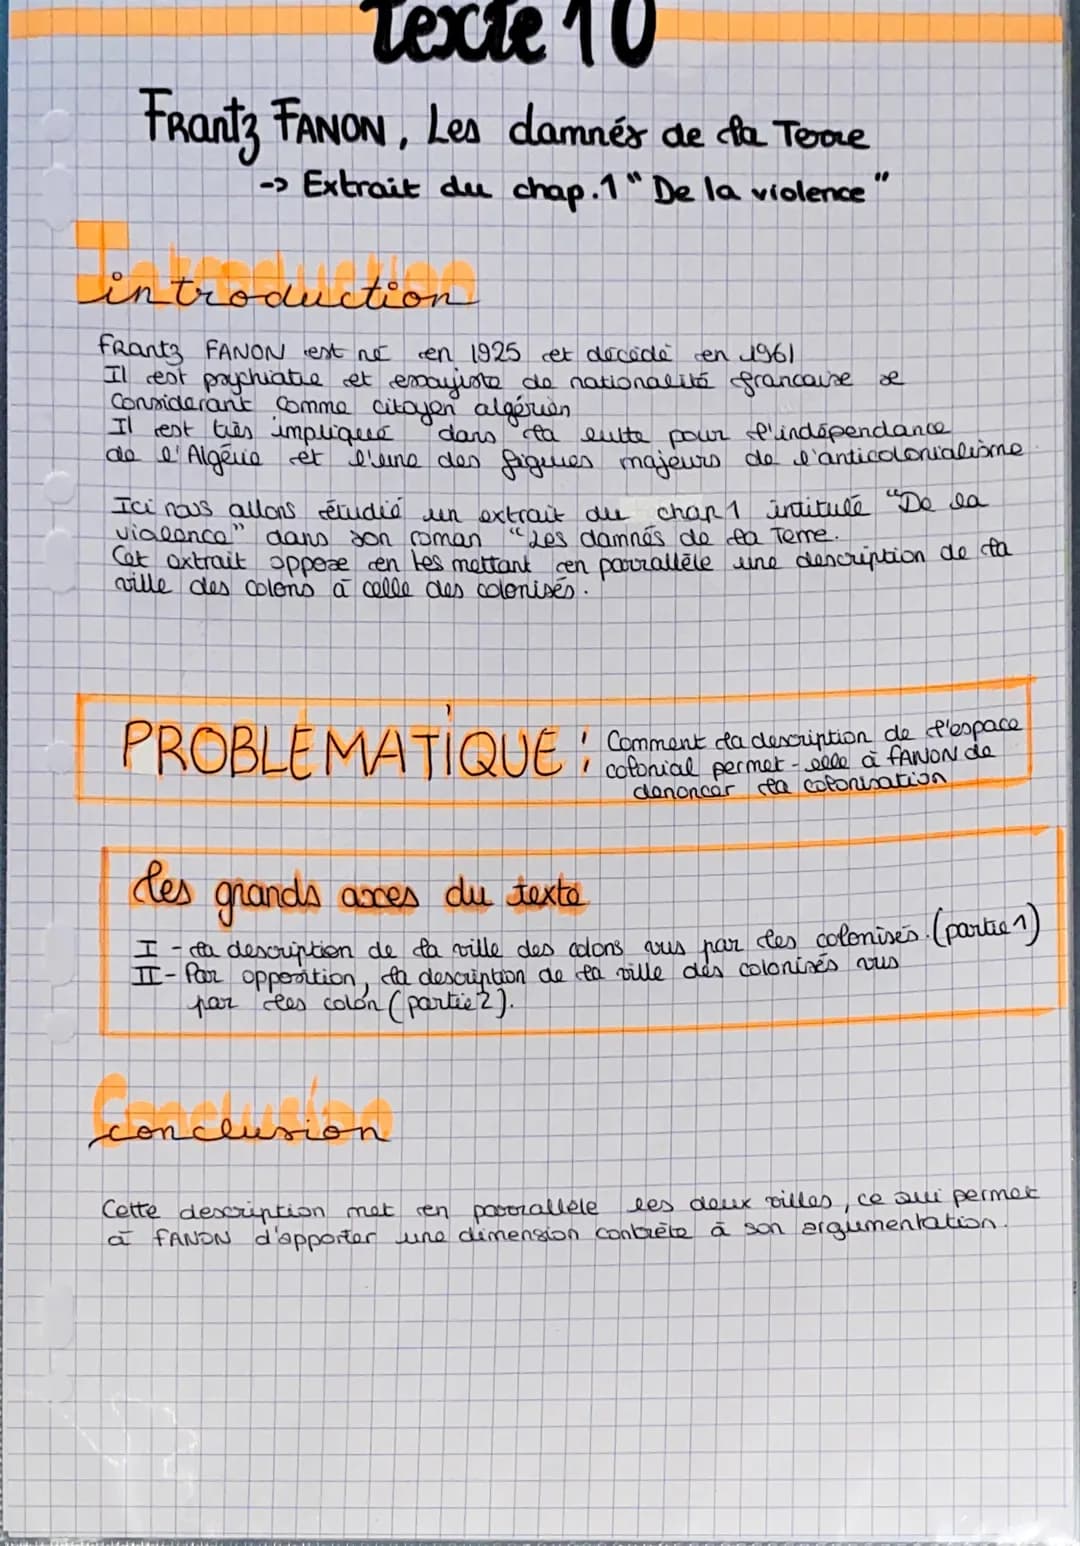 Texte 10
Frantz FANON, Les damnés de la Terre
-> Extrait du chap.1 "De la violence"
Introduction
introduction
Frantz FANON est né en 1925 et décédé en 1961
Il est psychiatre et essayiste de nationalité francaise se
Considerant comme citoyen algérien
Il est très impliqué dans la lutte pour l'indépendance
de l'Algérie et l'une des figures majeurs de l'anticolonialisme
Ici nous allons étudié un extrait du chap 1 intitulé "De la
violence" dans son roman "Les damnés de la Terre.
Cet extrait oppose en les mettant en parrallèle une description de la
ville des colons à celle des colonisés.
PROBLÉMATIQUE : Comment la description de l'espace
colonial permet-elle à FANON de
denoncer la colonisation
Les grands axes du texte
I - la description de la ville des colons vus par les colonisés. (partie 1)
II - Par opposition, la description de la ville des colonisés vus
par les colon (partie 2).
Conclusion
conclusion
Cette description met en parrallèle les deux villes, ce qui permet
à FANON d'apporter une dimension contrète à son argumentation.